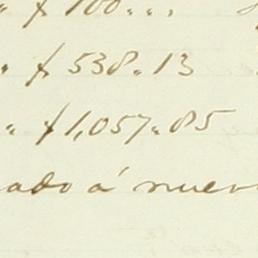 " $ 100.. "
" $ 538.. 13
" $ 1,057.. 85
ado á nuev